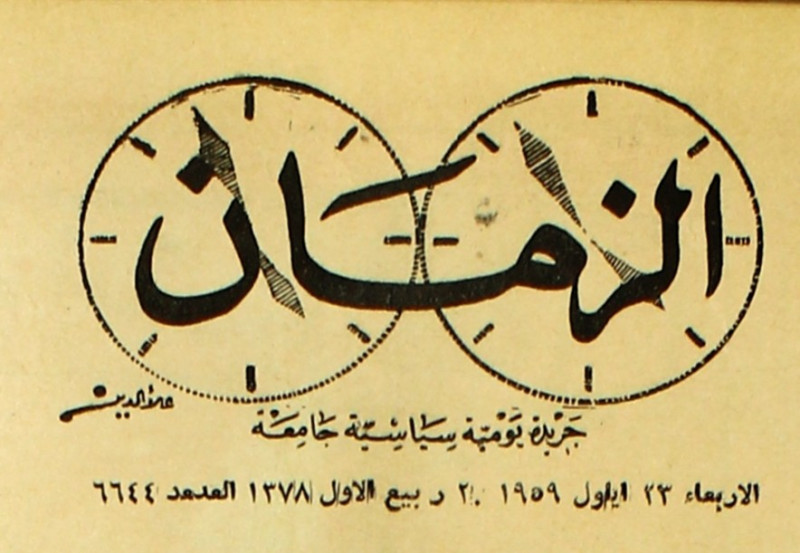 الزمان
علاء الدين
جَرْيدة يَوْميّة سِيَاسِيّة جَامِعَة
الاربعاء ٢٣ ايلول ١٩٥٩ ٢٠ ربيع الاول ١٣٧٨ العدد ٦٦٤٤